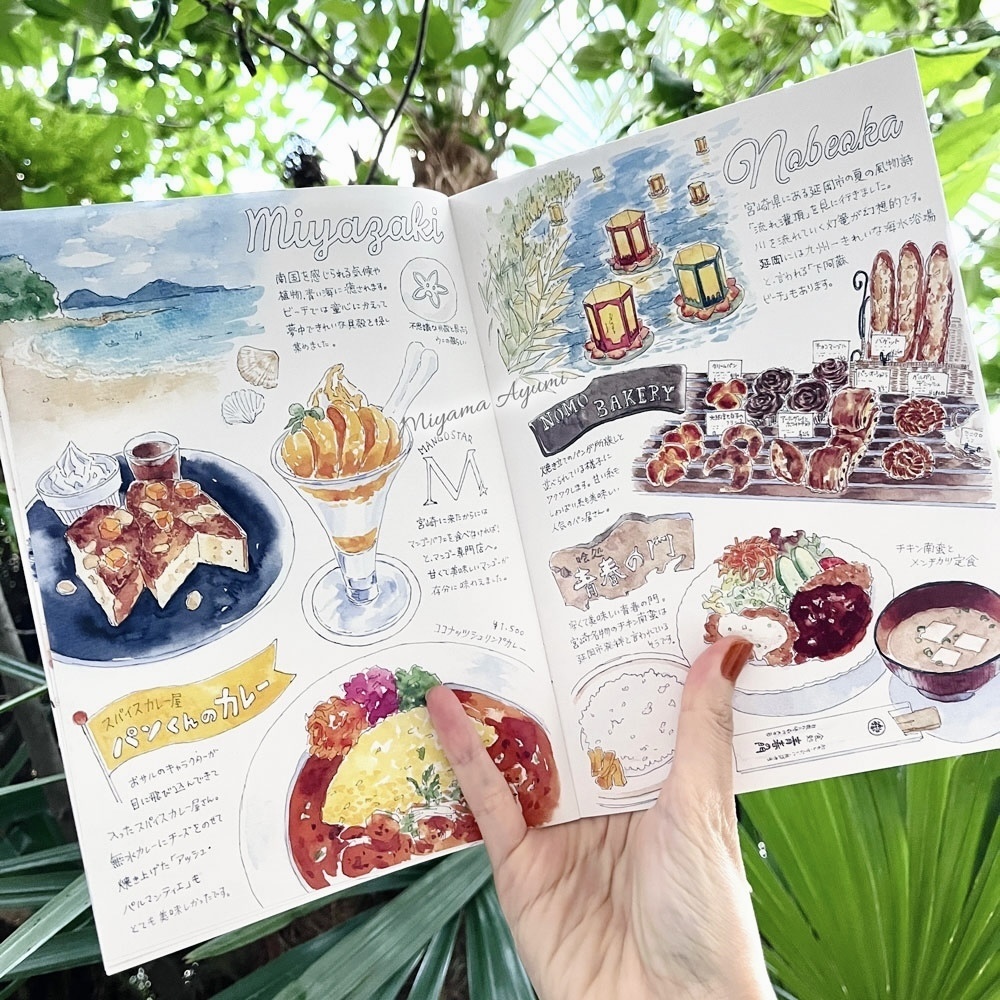 Miyazaki
南国を感じられる気候や
植物、青い海に癒されます。
ビーチでは童心にかえって
夢中できれいな貝殻を探し
集めました。
MANGOSTAR
M
宮崎に来たからには
マンゴーパフェを食べなければ!
と、マンゴー専門店へ。
甘くて美味しいマンゴーが
存分に味わえました。
¥1,500
スパイスカレー屋
パンくんのカレー
おサルのキャラクターが
目に飛び込んできて
入ったスパイスカレー屋さん。
無水カレーにチーズをのせて
焼き上げた「アッシュ・
パルマンティエ」も
とても美味しかったです。
Miyama Ayumi
Nobeoka
宮崎県にある延岡市の夏の風物詩
「流れ灌頂」を見に行きました。
川を流れていく灯篭が幻想的です。
延岡には九州一きれいな海水浴場
と、言われる「下阿蘇
ビーチ」もあります。
バゲット
クリームパン
NOMO BAKERY
焼き立てのパンが所狭しと
並べられている様子に
ワクワクします。甘い系も
しょっぱい系も美味しい
人気のパン屋さん。
青春の門
安くて美味しい青春の門。
宮崎名物のチキン南蛮は
延岡市発祥と言われている
そうです。
チキン南蛮と
メンチカツ定食
青春の門